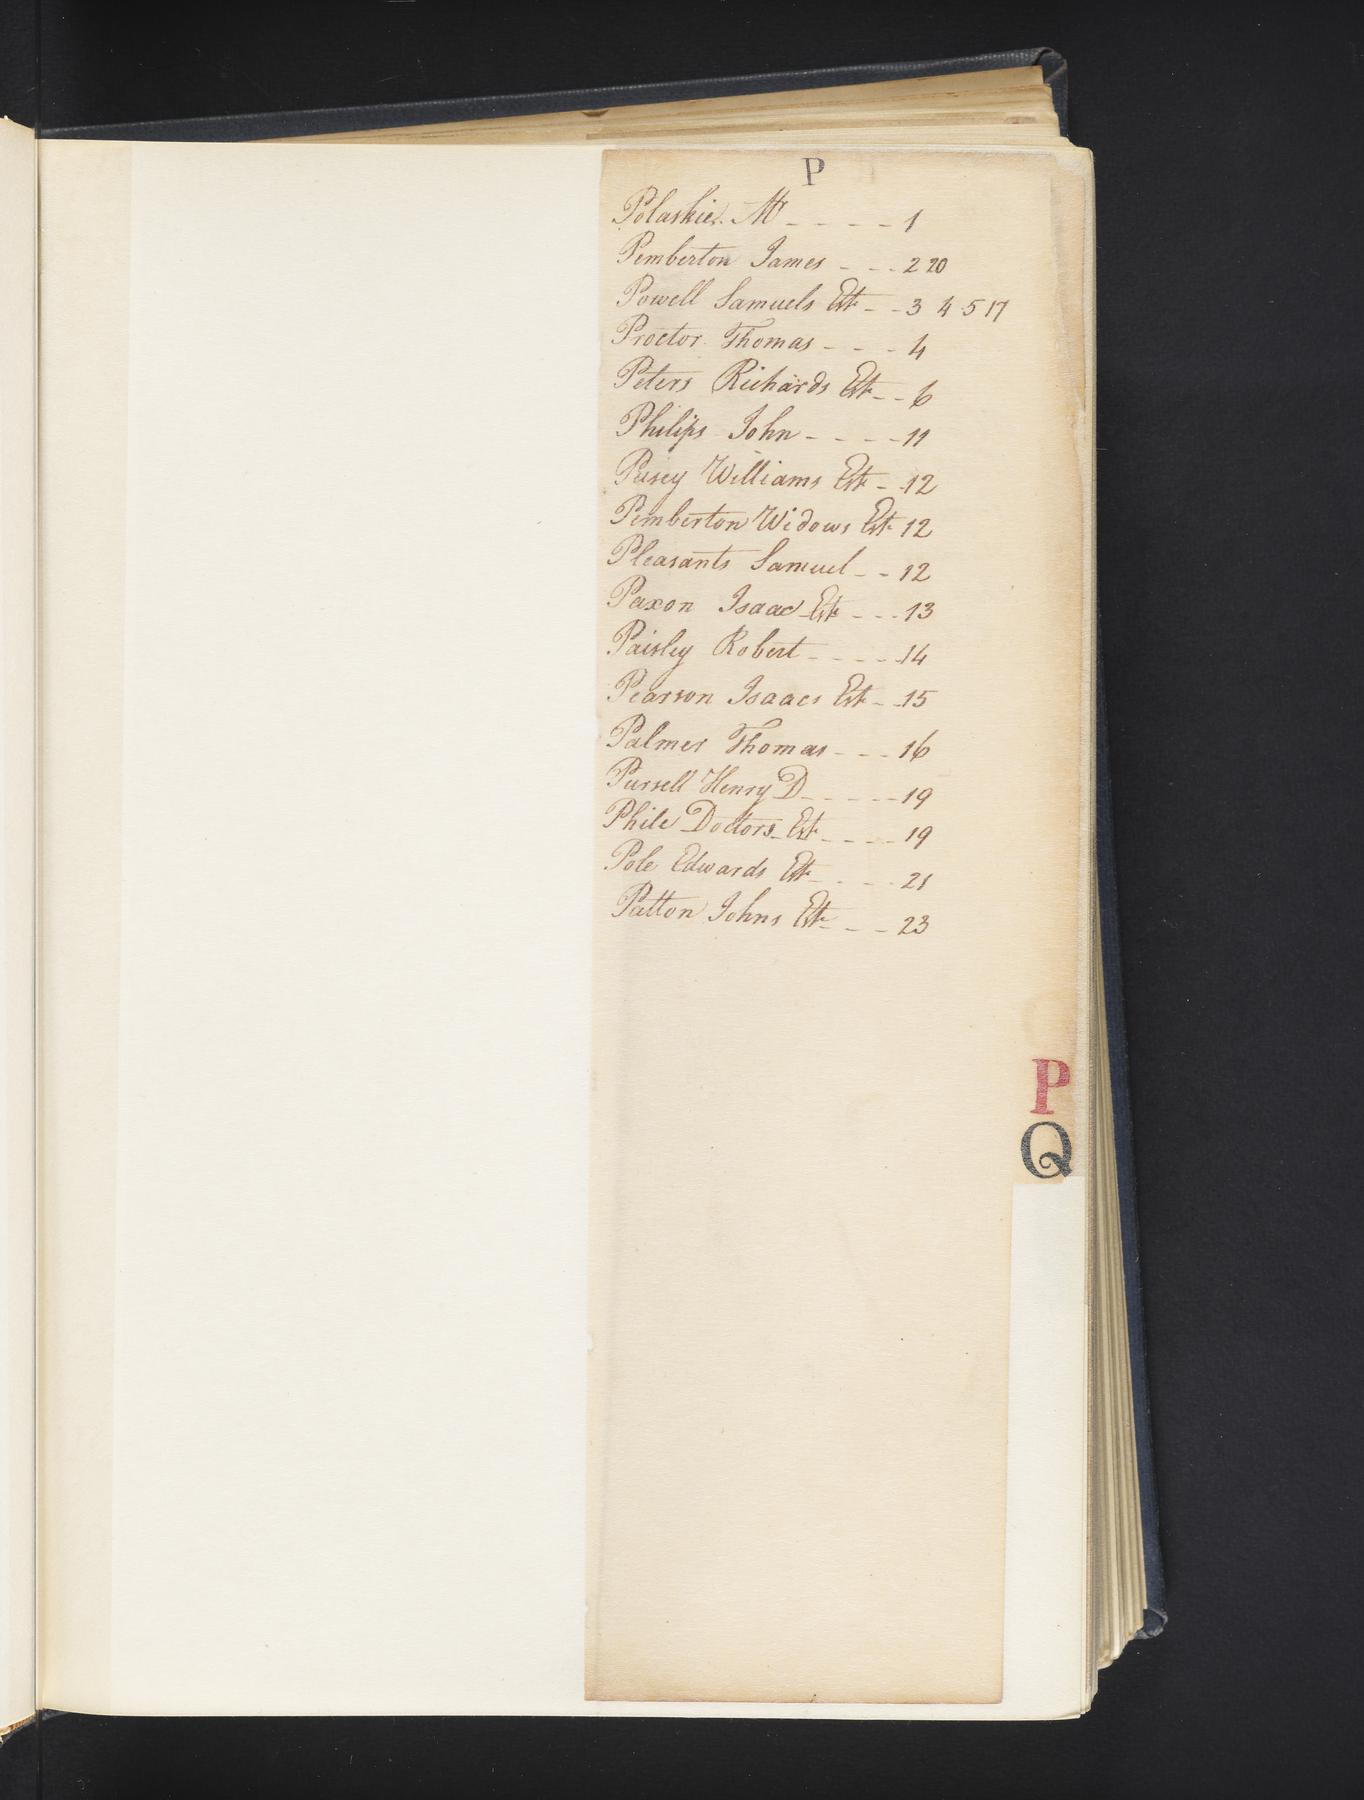 P
Polaskie Mr - - - - - 1
Pemberton James - - - 2 20
Powell Samuels Est - - 3 4 5 17
Proctor Thomas - - - 4
Peters Richards Est - - 6
Philips John - - - - - 11
Pusey Williams Est - - 12
Pemberton Widows Est - 12
Pleasants Samuel - - 12
Paxon Isaac Est - - - 13
Paisley Robert - - - - - 14
Pearson Isaacs Est - - 15
Palmer Thomas - - - 16
Pursell Henry D - - - - - 19
Phile Doctors Est - - - - 19
Pole Edwards Est - - - - 21
Patton Johns Est - - - 23
P
Q